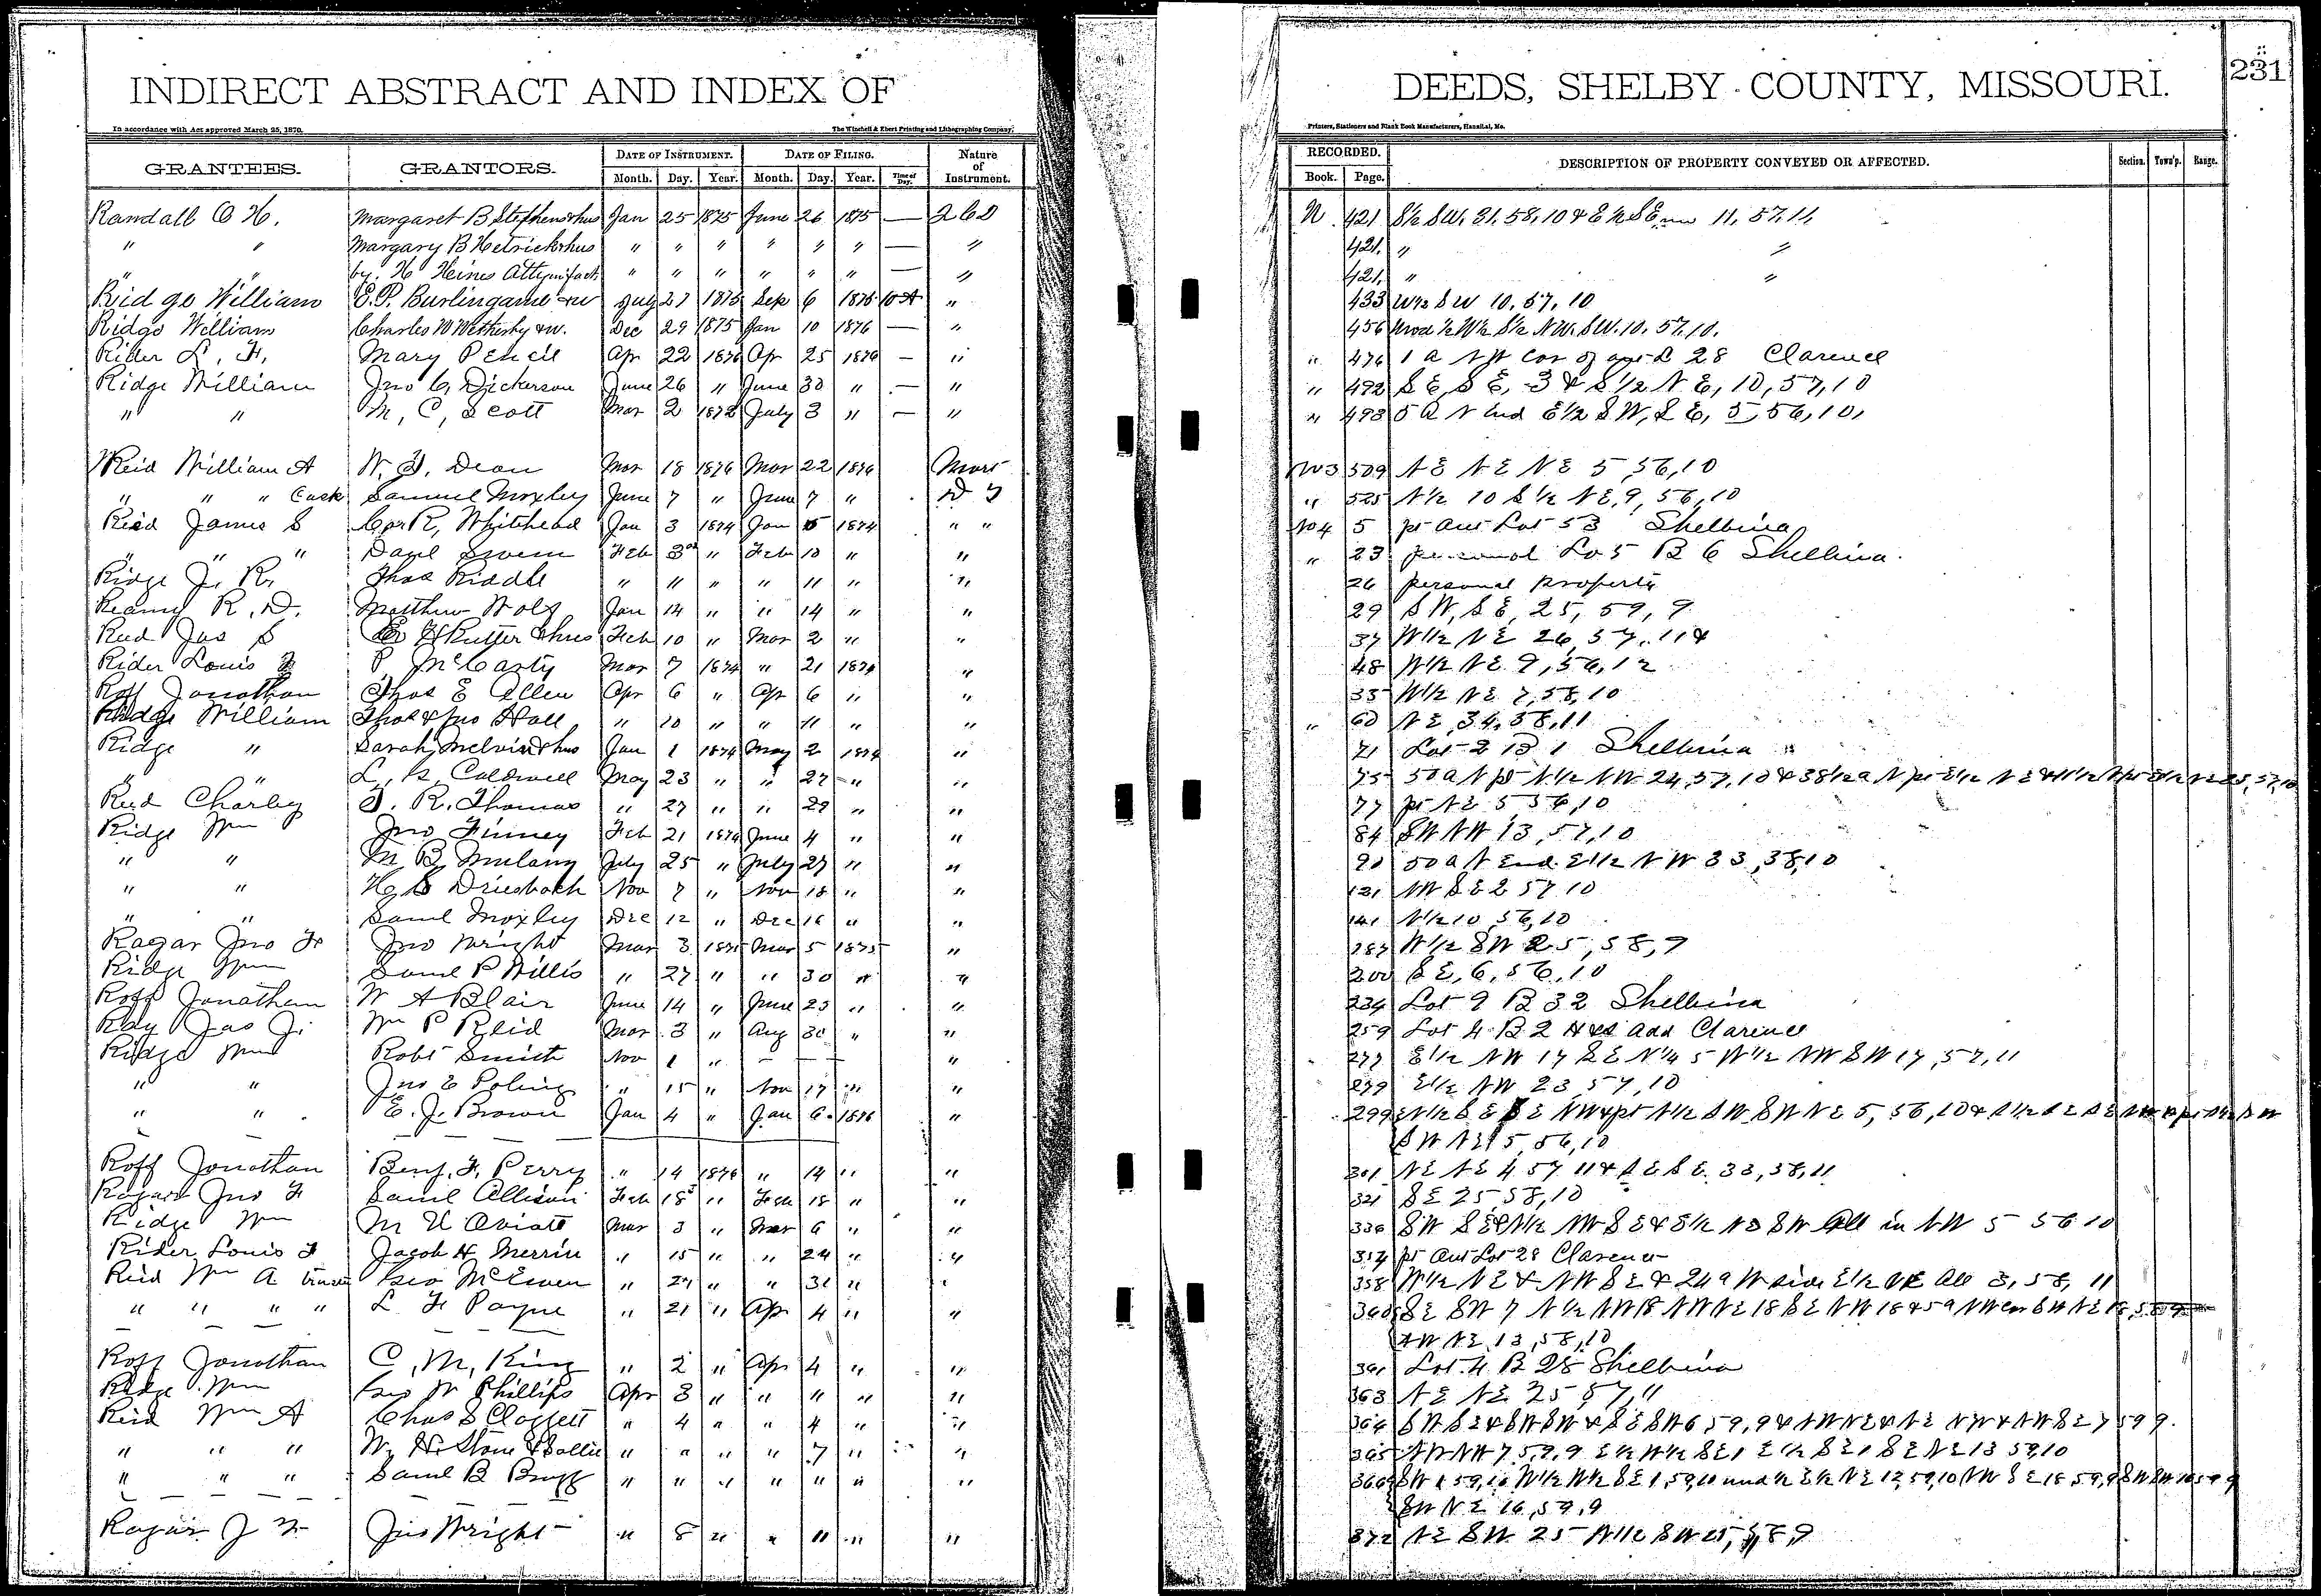 INDIRECT ABSTRACT AND INDEX OF DEEDS, SHELBY COUNTY, MISSOURI. 231
In accordance with Act approved March 25, 1870. The Winchell & Ebert Printing and Lithographing Company, Printers, Stationers and Blank Book Manufacturers, Hannibal, Mo.
GRANTEES. GRANTORS. DATE OF INSTRUMENT. DATE OF FILING. Nature of Instrument. RECORDED. DESCRIPTION OF PROPERTY CONVEYED OR AFFECTED. Section. Town'p. Range.
Month. Day. Year. Month. Day. Year. Time of Day. Book. Page.
Randall O H. Margaret B Stephens & hus Jan 25 1875 June 26 1875 — N 421 S½ SW. 31. 58. 10 & E½ SE 11. 57. 11
" " Margary B Hetrick & hus " " " " " " — " 421. " "
" " by. H Heines Atty in fact " " " " " " — " 421. " "
Ridge William E. P. Burlingame & w July 27 1875 Sep 6 1875 10 A " 433 W½ SW 10. 57. 10
Ridge William Charles W Wetherby & w. Dec 29 1875 Jan 10 1876 — " 456 Und ½ W½ S½ NW. SW. 10. 57. 10.
Rider L. F. Mary Pencil Apr 22 1876 Apr 25 1876 — " " 476 1 a NW Cor of L 28 Clarence
Ridge William Jno C. Dickerson June 26 " June 30 " — " " 492 SE, SE, 3 & S½ NE, 10, 57, 10
" " M, C, Scott Mar 2 1872 July 3 " — " " 493 5 a N End E½ SW, SE, 5, 56, 10,
Reid William A W. J. Dean Mar 18 1874 Mar 22 1874 509 NE NE NE 5, 56, 10
" " " Samuel Moxley June 7 " June 7 " D T " 525 N½ 10 S½ NE, 9, 56, 10
Reed James S Geo R, Whitehead Jan 3 1874 Jan 5 1874 " " No 4 5 pt Out Lot 53 Shelbina
" " " Danl Swem Feb 3rd " Feb 10 " " " 23 Lo 5 B 6 Shelbina.
Ridge J. R. Thos Riddle " 11 " " 11 " " 26 personal property
Reamy R. D. Matthew Wolf Jan 14 " " 14 " " 29 SW, SE, 25, 59, 9
Reed Jas S Rutter & hus Feb 10 " Mar 2 " " 37 W½ NE 26, 57. 11 &
Rider Louis F P. McCarty Mar 7 1874 " 21 1874 " 48 W½ NE 9, 56, 12
Roff Jonathan Thos E Allen Apr 6 " Apr 6 " " 55 W½ NE 7, 58, 10
Ridge William Thos & Jno Hall " 10 " " 11 " " " 60 NE, 34, 58, 11
Ridge " Sarah Melvin & hus Jan 1 1874 May 2 1874 " 71 Lot 2 B 1 Shelbina
" " L, B, Caldwell May 23 " " 27 " " 75 50 a N pt N½ NW 24, 57, 10 & 38½ a N pt E½ NE
Reed Charley J. R. Thomas " 27 " " 29 " " 77 pt NE 5 56, 10
Ridge Wm Jno Finney Feb 21 1874 June 4 " " 84 SW NW 13, 57, 10
" " M B, Mulany July 25 " July 27 " " 90 50 a N End E½ NW 33, 58, 10
" " H, S Driesbach Nov 7 " Nov 18 " " 131 NW SE 2 57 10
" " Saml Moxley Dec 12 " Dec 16 " " 141 N½ 10, 56, 10
Ragar Jno F Jno Wright Mar 3 1875 Mar 5 1875 " 187 W½ SW 25, 58, 9
Ridge Wm Saml P Willis " 27 " " 30 " " 200 SE, 6, 56, 10
Roff Jonathan W A Blair June 14 " June 23 " " 234 Lot 9 B 32 Shelbina
Ray Jas J. Wm P Reid Mar 3 " Aug 30 " " 259 Lot 4 B 2 H&S Add Clarence
Ridge Wm Robt Smith Nov 1 " — — — " 277 E½ NW 17 SE N¼ 5 W½ NW SW 17, 57, 11
" " Jno E Poling " 15 " Nov 17 " " 279 E½ NW 23, 57, 10
" " E. J. Brown Jan 4 " Jan 6 1876 " 299 N½ SE SE NW & pt N½ SW SW NE 5, 56, 10 &
SW NE 5, 56, 10
Roff Jonathan Benj. F. Perry " 14 1876 " 14 " " 301 NE NE 4 57 11 & SE SE 33, 58, 11
Ragar Jno F Saml Allison Feb 18 " Feb 18 " " 321 SE 25 58, 10
Ridge Wm M U Oviatt Mar 3 " Mar 6 " " 336 SW SE & N½ NW SE & E½ NE SW All in NW 5 56 10
Rider Louis F Jacob H Merrin " 15 " " 24 " " 354 pt Out Lot 28 Clarence
Reid Wm A Geo McEwen " 27 " " 31 " " 358 W½ NE & NW SE & 24 a W side E½ NE All 3, 58, 11
" " " " L F Payne " 21 " Apr 4 " " 360 SE SW 7 N½ NW 18 NW NE 18 SE NW 18 & 5 a NW cor SW NE 18, 58
NW NE 13, 58, 10
Roff Jonathan C, M, King " 2 " Apr 4 " " 361 Lot 4 B 28 Shelbina
Ridge Wm Geo W Phillips Apr 3 " " " " " 363 NE NE 25 57, 11
Reid Wm A Chas S Cloggett " 4 " " 4 " " 364 SW SE & SW SW & SE SW 6, 59, 9 & NW NE & NE NW & NW SE 7 59 9.
" " " W, H. Stone & Sallie " " " " 7 " " 365 NW NW 7, 59, 9 E½ W½ SE 1 E½ SE 1 SE NE 13 59, 10
" " " Saml B Bragg " " " " " " " 366 SW 1 59, 10 W½ W½ SE 1, 59, 10 und ½ E½ NE 12, 59, 10 NW SE 18 59, 9 SW SW
SW NE 16, 59, 9
Ragar J F Jas Wright " 8 " " 11 " " 372 NE SW 25 N½ SW 25, 58, 9